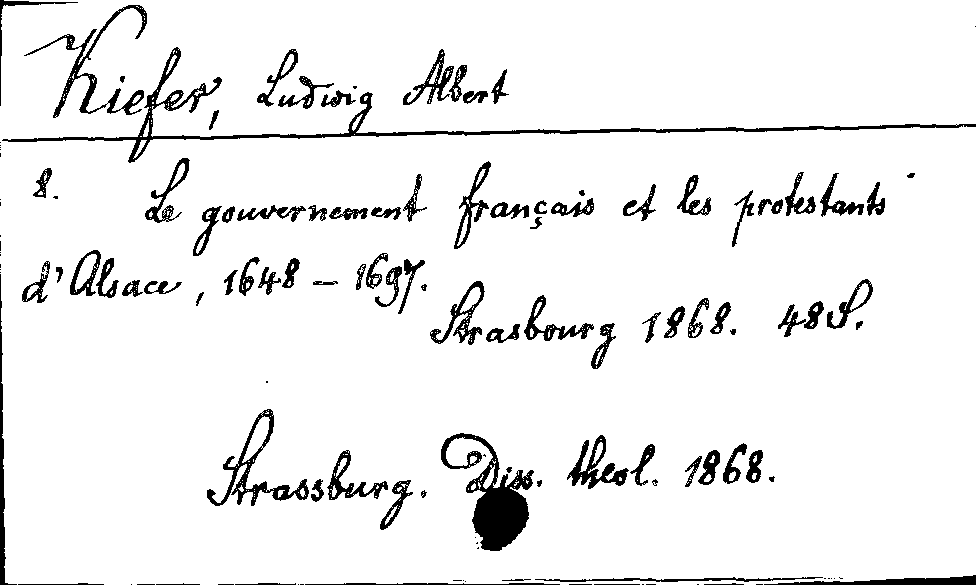 Kiefer, Ludwig Albert
8. Le gouvernement français et les protestants
d'Alsace, 1648 – 1697.
Strasbourg 1868. 48 S.
Strassburg. Diss. theol. 1868.